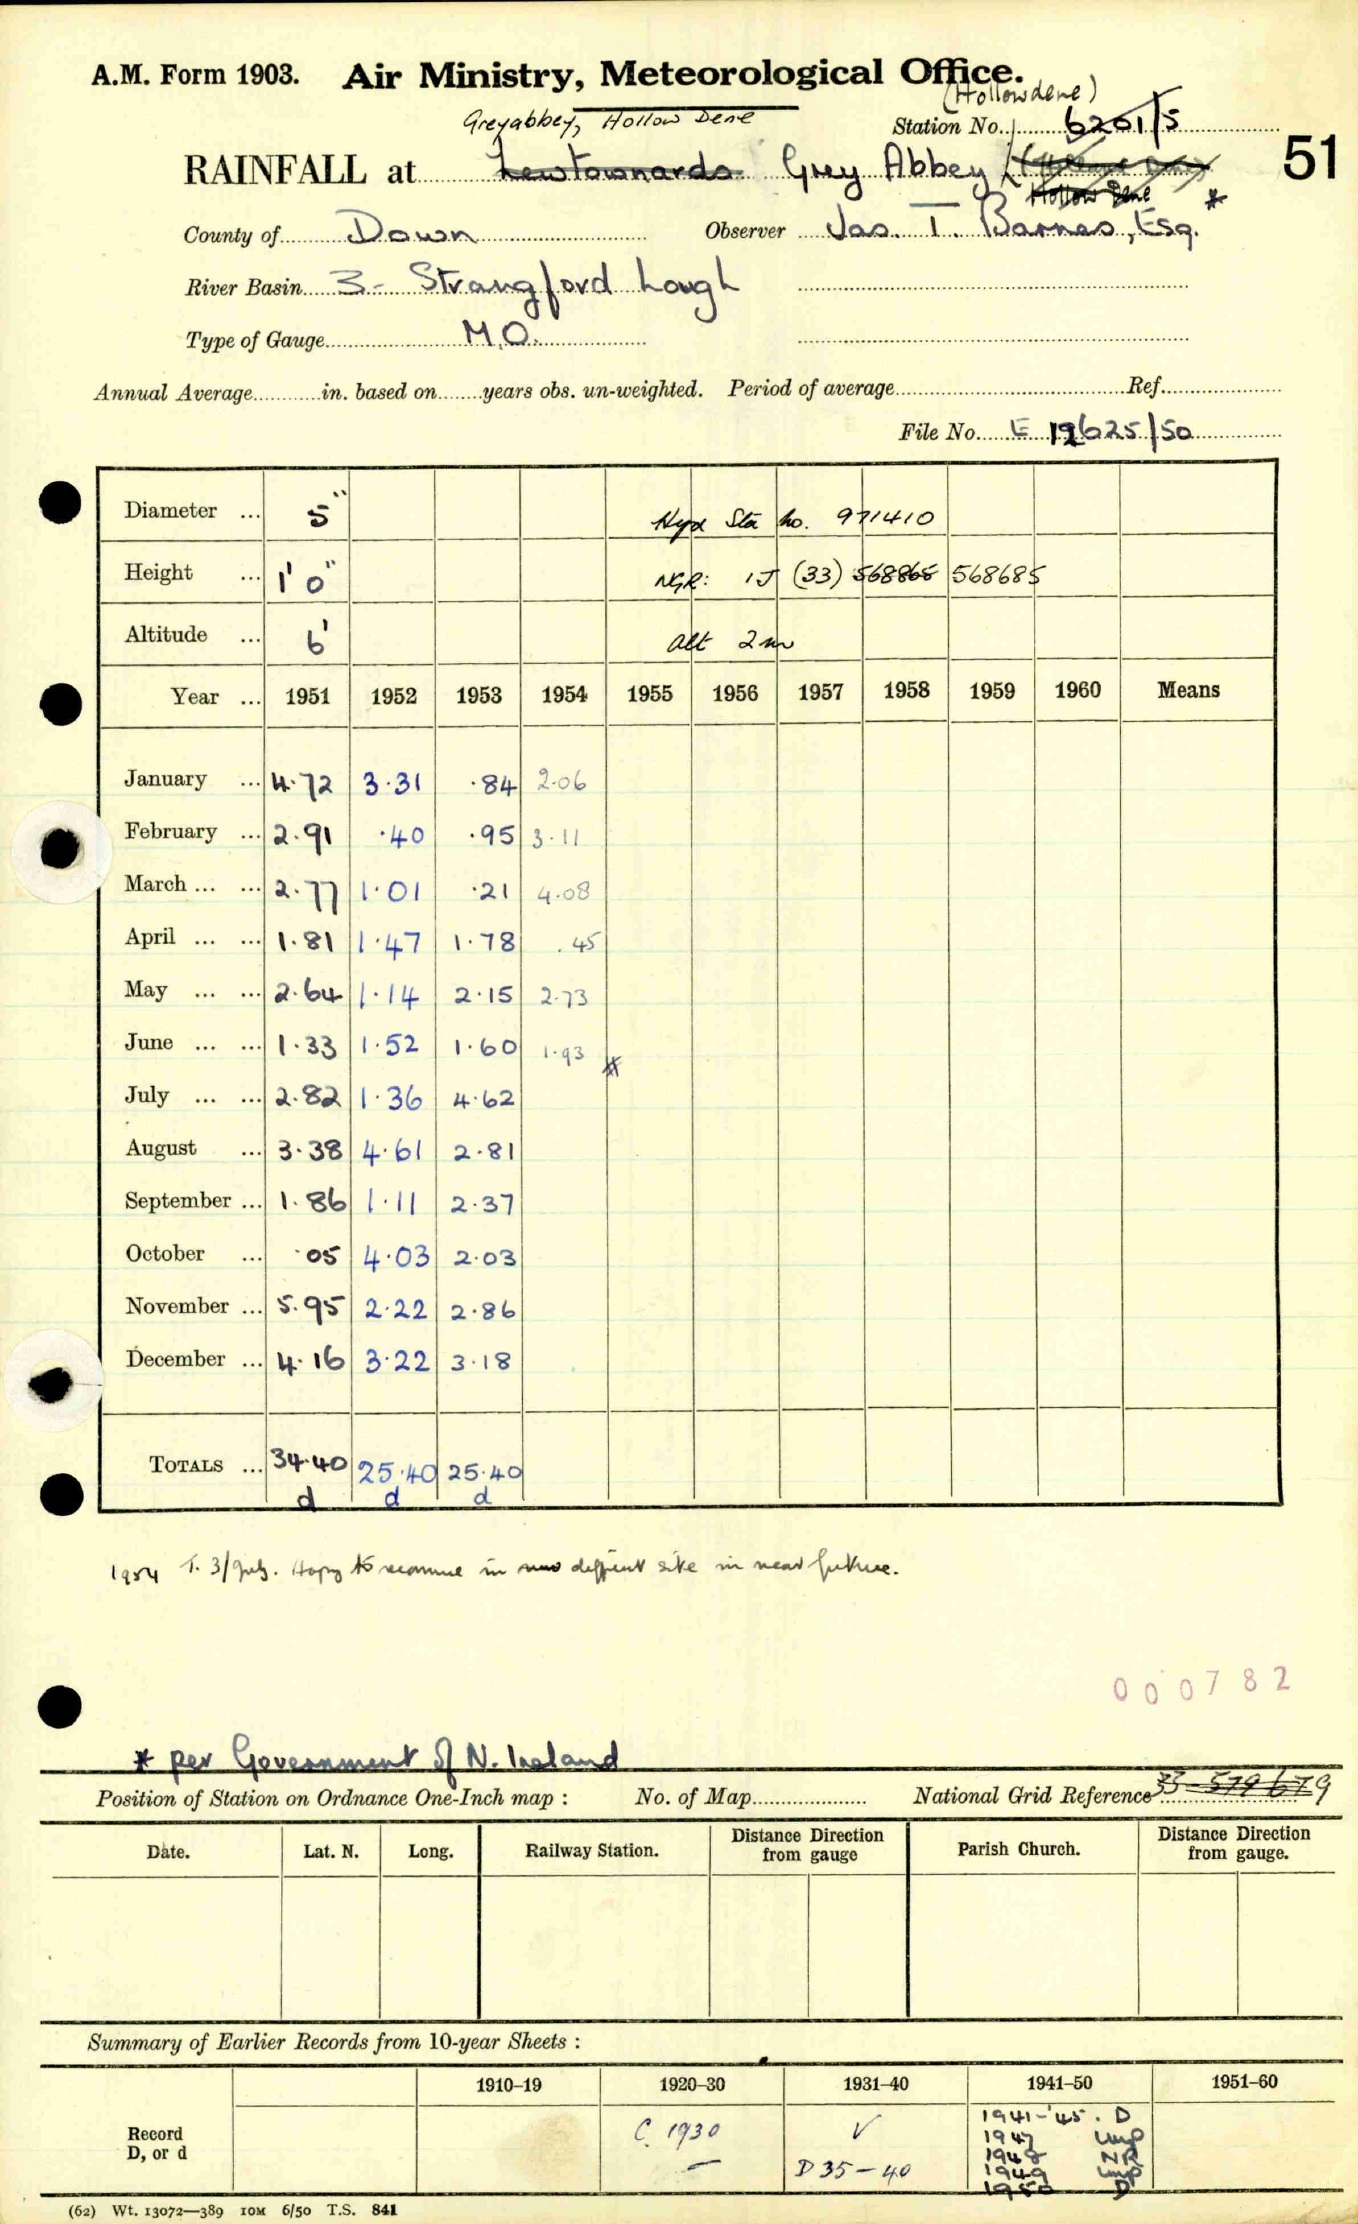 A.M. Form 1903. Air Ministry, Meteorological Office.
(Hollowdene)
Greyabbey, Hollow Dene
Station No. 6201/5
51
RAINFALL at Newtownards Grey Abbey
Hollow Dene *
County of Down Observer Jas. T. Barnes, Esq.
River Basin 3- Strangford Lough
Type of Gauge M.O.
Annual Average in. based on years obs. un-weighted. Period of average Ref.
File No. E 12625/50
Diameter ... 5" Hyd Sta no. 971410
Height ... 1' 0" NGR: IJ (33) 568865 568685
Altitude ... 6' Alt 2m
Year ... 1951 1952 1953 1954 1955 1956 1957 1958 1959 1960 Means
January ... 4.72 3.31 .84 2.06
February ... 2.91 .40 .95 3.11
March ... ... 2.77 1.01 .21 4.08
April ... ... 1.81 1.47 1.78 .45
May ... ... 2.64 1.14 2.15 2.73
June ... ... 1.33 1.52 1.60 1.93 *
July ... ... 2.82 1.36 4.62
August ... 3.38 4.61 2.81
September ... 1.86 1.11 2.37
October ... .05 4.03 2.03
November ... 5.95 2.22 2.86
December ... 4.16 3.22 3.18
TOTALS ... 34.40 25.40 25.40
d d d
1954 T. 3/July. Hopes to resume in new different site in near future.
000782
* per Government of N. Ireland
Position of Station on Ordnance One-Inch map : No. of Map National Grid Reference 33-579679
Date. Lat. N. Long. Railway Station. Distance Direction from gauge Parish Church. Distance Direction from gauge.
Summary of Earlier Records from 10-year Sheets :
1910–19 1920–30 1931–40 1941–50 1951–60
Record
D, or d
C. 1930
—
V
D 35-40
1941-'45. D
1947 Unp
1948 NR
1949 Unp
1950 D
(62) Wt. 13072—389 10M 6/50 T.S. 841